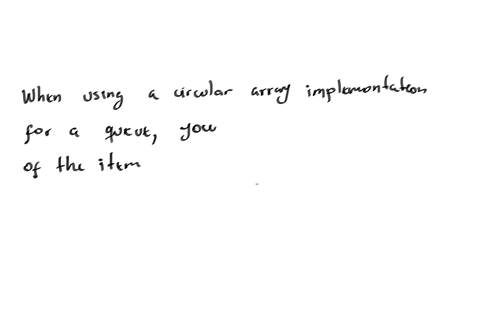 When using a circular array implementation
for a queue, you
of the item